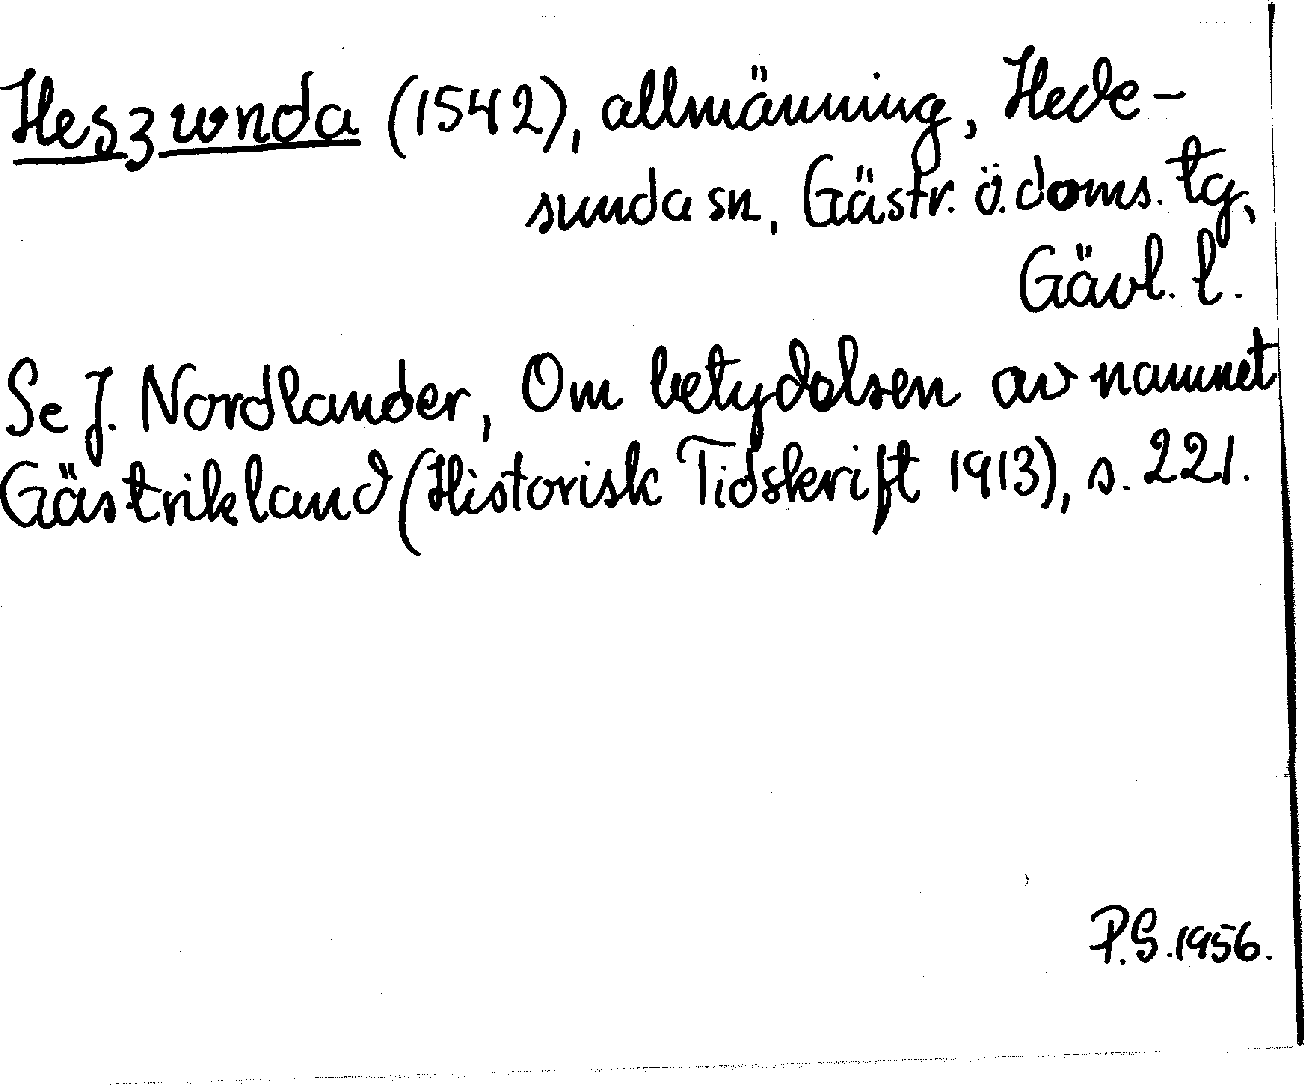 Heszwnda (1542), allmänning, Hede-
sunda sn, Gästr. ö. doms. tg,
Gävl. l.
Se J. Nordlander, Om betydelsen av namnet
Gästrikland (Historisk Tidskrift 1913), s. 221.
P.S. 1956.